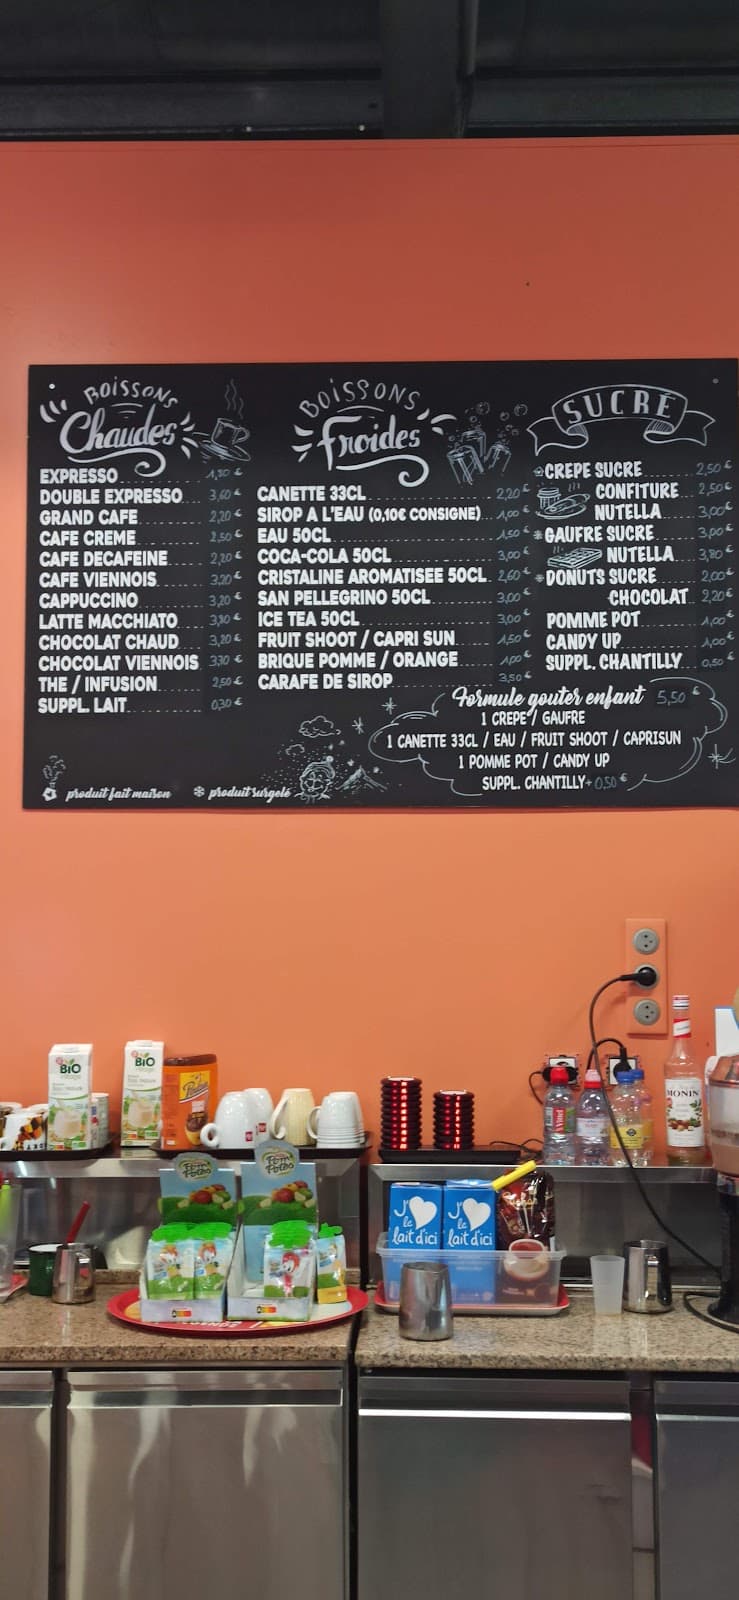 BOISSONS
Chaudes
EXPRESSO 1,80 €
DOUBLE EXPRESSO 3,60 €
GRAND CAFE 2,20 €
CAFE CREME 2,50 €
CAFE DECAFEINE 2,20 €
CAFE VIENNOIS 3,20 €
CAPPUCCINO 3,20 €
LATTE MACCHIATO 3,80 €
CHOCOLAT CHAUD 3,20 €
CHOCOLAT VIENNOIS 3,70 €
THE / INFUSION 2,50 €
SUPPL. LAIT 0,30 €
produit fait maison
produit surgelé
BOISSONS
Froides
CANETTE 33CL 2,20 €
SIROP A L'EAU (0,10€ CONSIGNE) 1,00 €
EAU 50CL 1,50 €
COCA-COLA 50CL 3,00 €
CRISTALINE AROMATISEE 50CL 2,60 €
SAN PELLEGRINO 50CL 3,00 €
ICE TEA 50CL 3,00 €
FRUIT SHOOT / CAPRI SUN 1,50 €
BRIQUE POMME / ORANGE 1,00 €
CARAFE DE SIROP 3,50 €
SUCRÉ
CREPE SUCRE 2,50 €
CONFITURE 2,50 €
NUTELLA 3,00 €
GAUFRE SUCRE 3,00 €
NUTELLA 3,80 €
DONUTS SUCRE 2,00 €
CHOCOLAT 2,20 €
POMME POT 1,00 €
CANDY UP 1,00 €
SUPPL. CHANTILLY 0,50 €
Formule gouter enfant 5,50 €
1 CREPE / GAUFRE
1 CANETTE 33CL / EAU / FRUIT SHOOT / CAPRISUN
1 POMME POT / CANDY UP
SUPPL. CHANTILLY + 0,50 €
BIO
BIO
MONIN
Pom'Potes
Pom'Potes
J'
le
lait d'ici
J'
le
lait d'ici